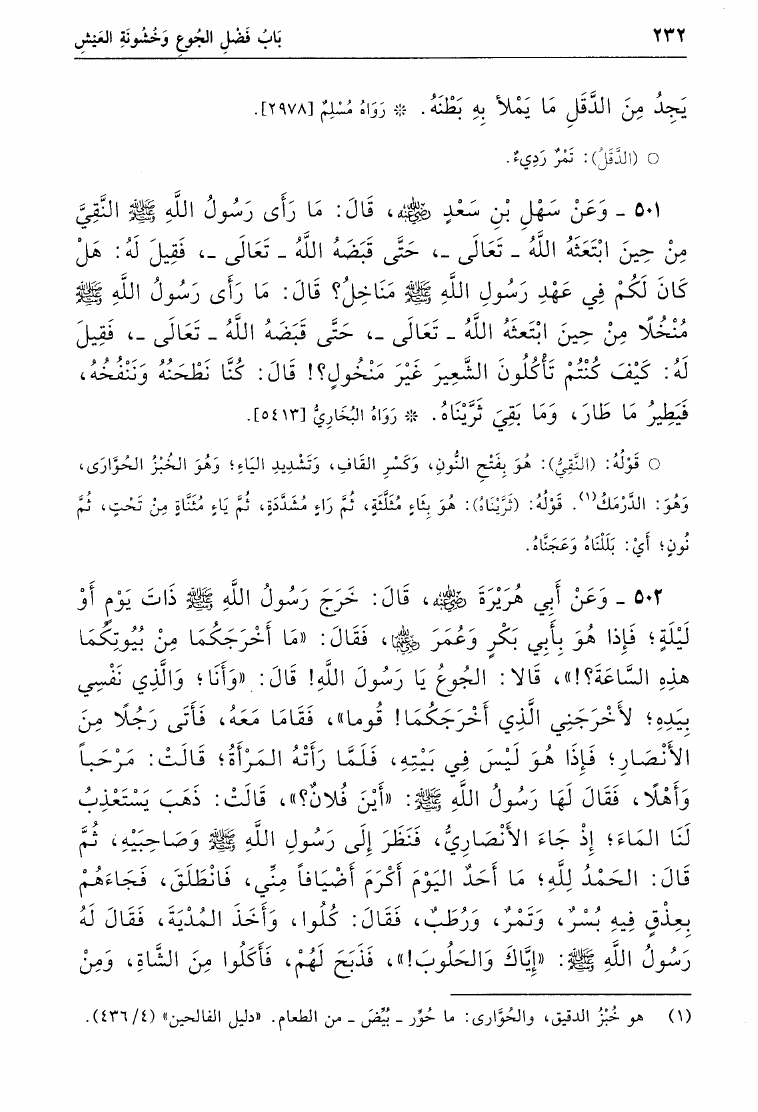 ٢٣٢ بَابُ فَضْلِ الجُوعِ وَخُشُونَةِ العَيْشِ
يَجِدُ مِنَ الدَّقَلِ مَا يَمْلأ بِهِ بَطْنَهُ. * رَوَاهُ مُسْلِمٌ [٢٩٧٨].
○ (الدَّقَلُ): تَمْرٌ رَدِيءٌ.
٥٠١ ـ وَعَنْ سَهْلِ بْنِ سَعْدٍ رضي الله عنه، قَالَ: مَا رَأَى رَسُولُ اللَّهِ ﷺ النَّقِيَّ
مِنْ حِينَ ابْتَعَثَهُ اللَّهُ ـ تَعَالَى ـ، حَتَّى قَبَضَهُ اللَّهُ ـ تَعَالَى ـ، فَقِيلَ لَهُ: هَلْ
كَانَ لَكُمْ فِي عَهْدِ رَسُولِ اللَّهِ ﷺ مَنَاخِلُ؟ قَالَ: مَا رَأَى رَسُولُ اللَّهِ ﷺ
مُنْخُلًا مِنْ حِينَ ابْتَعثَهُ اللَّهُ ـ تَعَالَى ـ، حَتَّى قَبَضَهُ اللَّهُ ـ تَعَالَى ـ، فَقِيلَ
لَهُ: كَيْفَ كُنْتُمْ تَأْكُلُونَ الشَّعِيرَ غَيْرَ مَنْخُولٍ؟! قَالَ: كُنَّا نَطْحَنُهُ وَنَنْفُخُهُ،
فَيَطِيرُ مَا طَارَ، وَمَا بَقِيَ ثَرَّيْنَاهُ. * رَوَاهُ البُخَارِيُّ [٥٤١٣].
○ قَوْلُهُ: (النَّقِيُّ): هُوَ بِفَتْحِ النُّونِ، وَكَسْرِ القَافِ، وَتَشْدِيدِ اليَاءِ؛ وَهُوَ الخُبْزُ الحُوَّارَى،
وَهُوَ: الدَّرْمَكُ(١). قَوْلُهُ: (ثَرَّيْنَاهُ): هُوَ بِثَاءٍ مُثَلَّثَةٍ، ثُمَّ رَاءٍ مُشَدَّدَةٍ، ثُمَّ يَاءٍ مُثَنَّاةٍ مِنْ تَحْتٍ، ثُمَّ
نُونٍ؛ أَيْ: بَلَلْنَاهُ وَعَجَنَّاهُ.
٥٠٢ ـ وَعَنْ أَبِي هُرَيْرَةَ رضي الله عنه، قَالَ: خَرَجَ رَسُولُ اللَّهِ ﷺ ذَاتَ يَوْمٍ أَوْ
لَيْلَةٍ؛ فَإِذَا هُوَ بِأَبِي بَكْرٍ وَعُمَرَ رضي الله عنهما، فَقَالَ: «مَا أَخْرَجَكُمَا مِنْ بُيُوتِكُمَا
هذِهِ السَّاعَةَ؟!»، قَالا: الجُوعُ يَا رَسُولَ اللَّهِ! قَالَ: «وَأَنَا؛ وَالَّذِي نَفْسِي
بِيَدِهِ؛ لأَخْرَجَنِي الَّذِي أَخْرَجَكُمَا! قُوما»، فَقَامَا مَعَهُ، فَأَتَى رَجُلًا مِنَ
الأَنْصَارِ؛ فَإِذَا هُوَ لَيْسَ فِي بَيْتِهِ، فَلَمَّا رَأَتْهُ المَرْأَةُ؛ قَالَتْ: مَرْحَباً
وَأَهْلًا، فَقَالَ لَهَا رَسُولُ اللَّهِ ﷺ: «أَيْنَ فُلانٌ؟»، قَالَتْ: ذَهَبَ يَسْتَعْذِبُ
لَنَا المَاءَ؛ إِذْ جَاءَ الأَنْصَارِيُّ، فَنَظَرَ إِلَى رَسُولِ اللَّهِ ﷺ وَصَاحِبَيْهِ، ثُمَّ
قَالَ: الحَمْدُ لِلَّهِ؛ مَا أَحَدٌ اليَوْمَ أَكْرَمَ أَضْيَافاً مِنِّي، فَانْطَلَقَ، فَجَاءَهُمْ
بِعِذْقٍ فِيهِ بُسْرٌ، وَتَمْرٌ، وَرُطَبٌ، فَقَالَ: كُلُوا، وَأَخَذَ المُدْيَةَ، فَقَالَ لَهُ
رَسُولُ اللَّهِ ﷺ: «إِيَّاكَ وَالحَلُوبَ!»، فَذَبَحَ لَهُمْ، فَأَكَلُوا مِنَ الشَّاةِ، وَمِنْ
(١) هو خُبْزُ الدقيق، والحُوَّارى: ما حُوِّر ـ بُيِّضَ ـ من الطعام. «دليل الفالحين» (٤/ ٤٣٦).